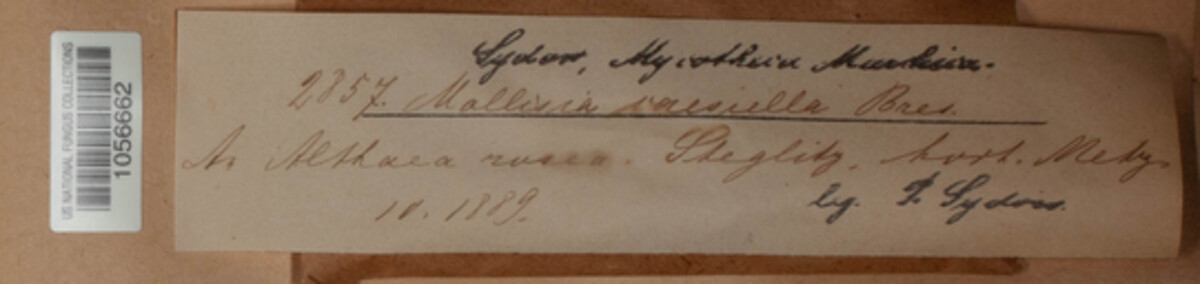 US NATIONAL FUNGUS COLLECTIONS
1056662
Sydow, Mycotheca Marchica.
2857. Mollisia caesiella Bres.
An Althaea rosea. Steglitz, hort. Metz.
10. 1889.
leg. P. Sydow.